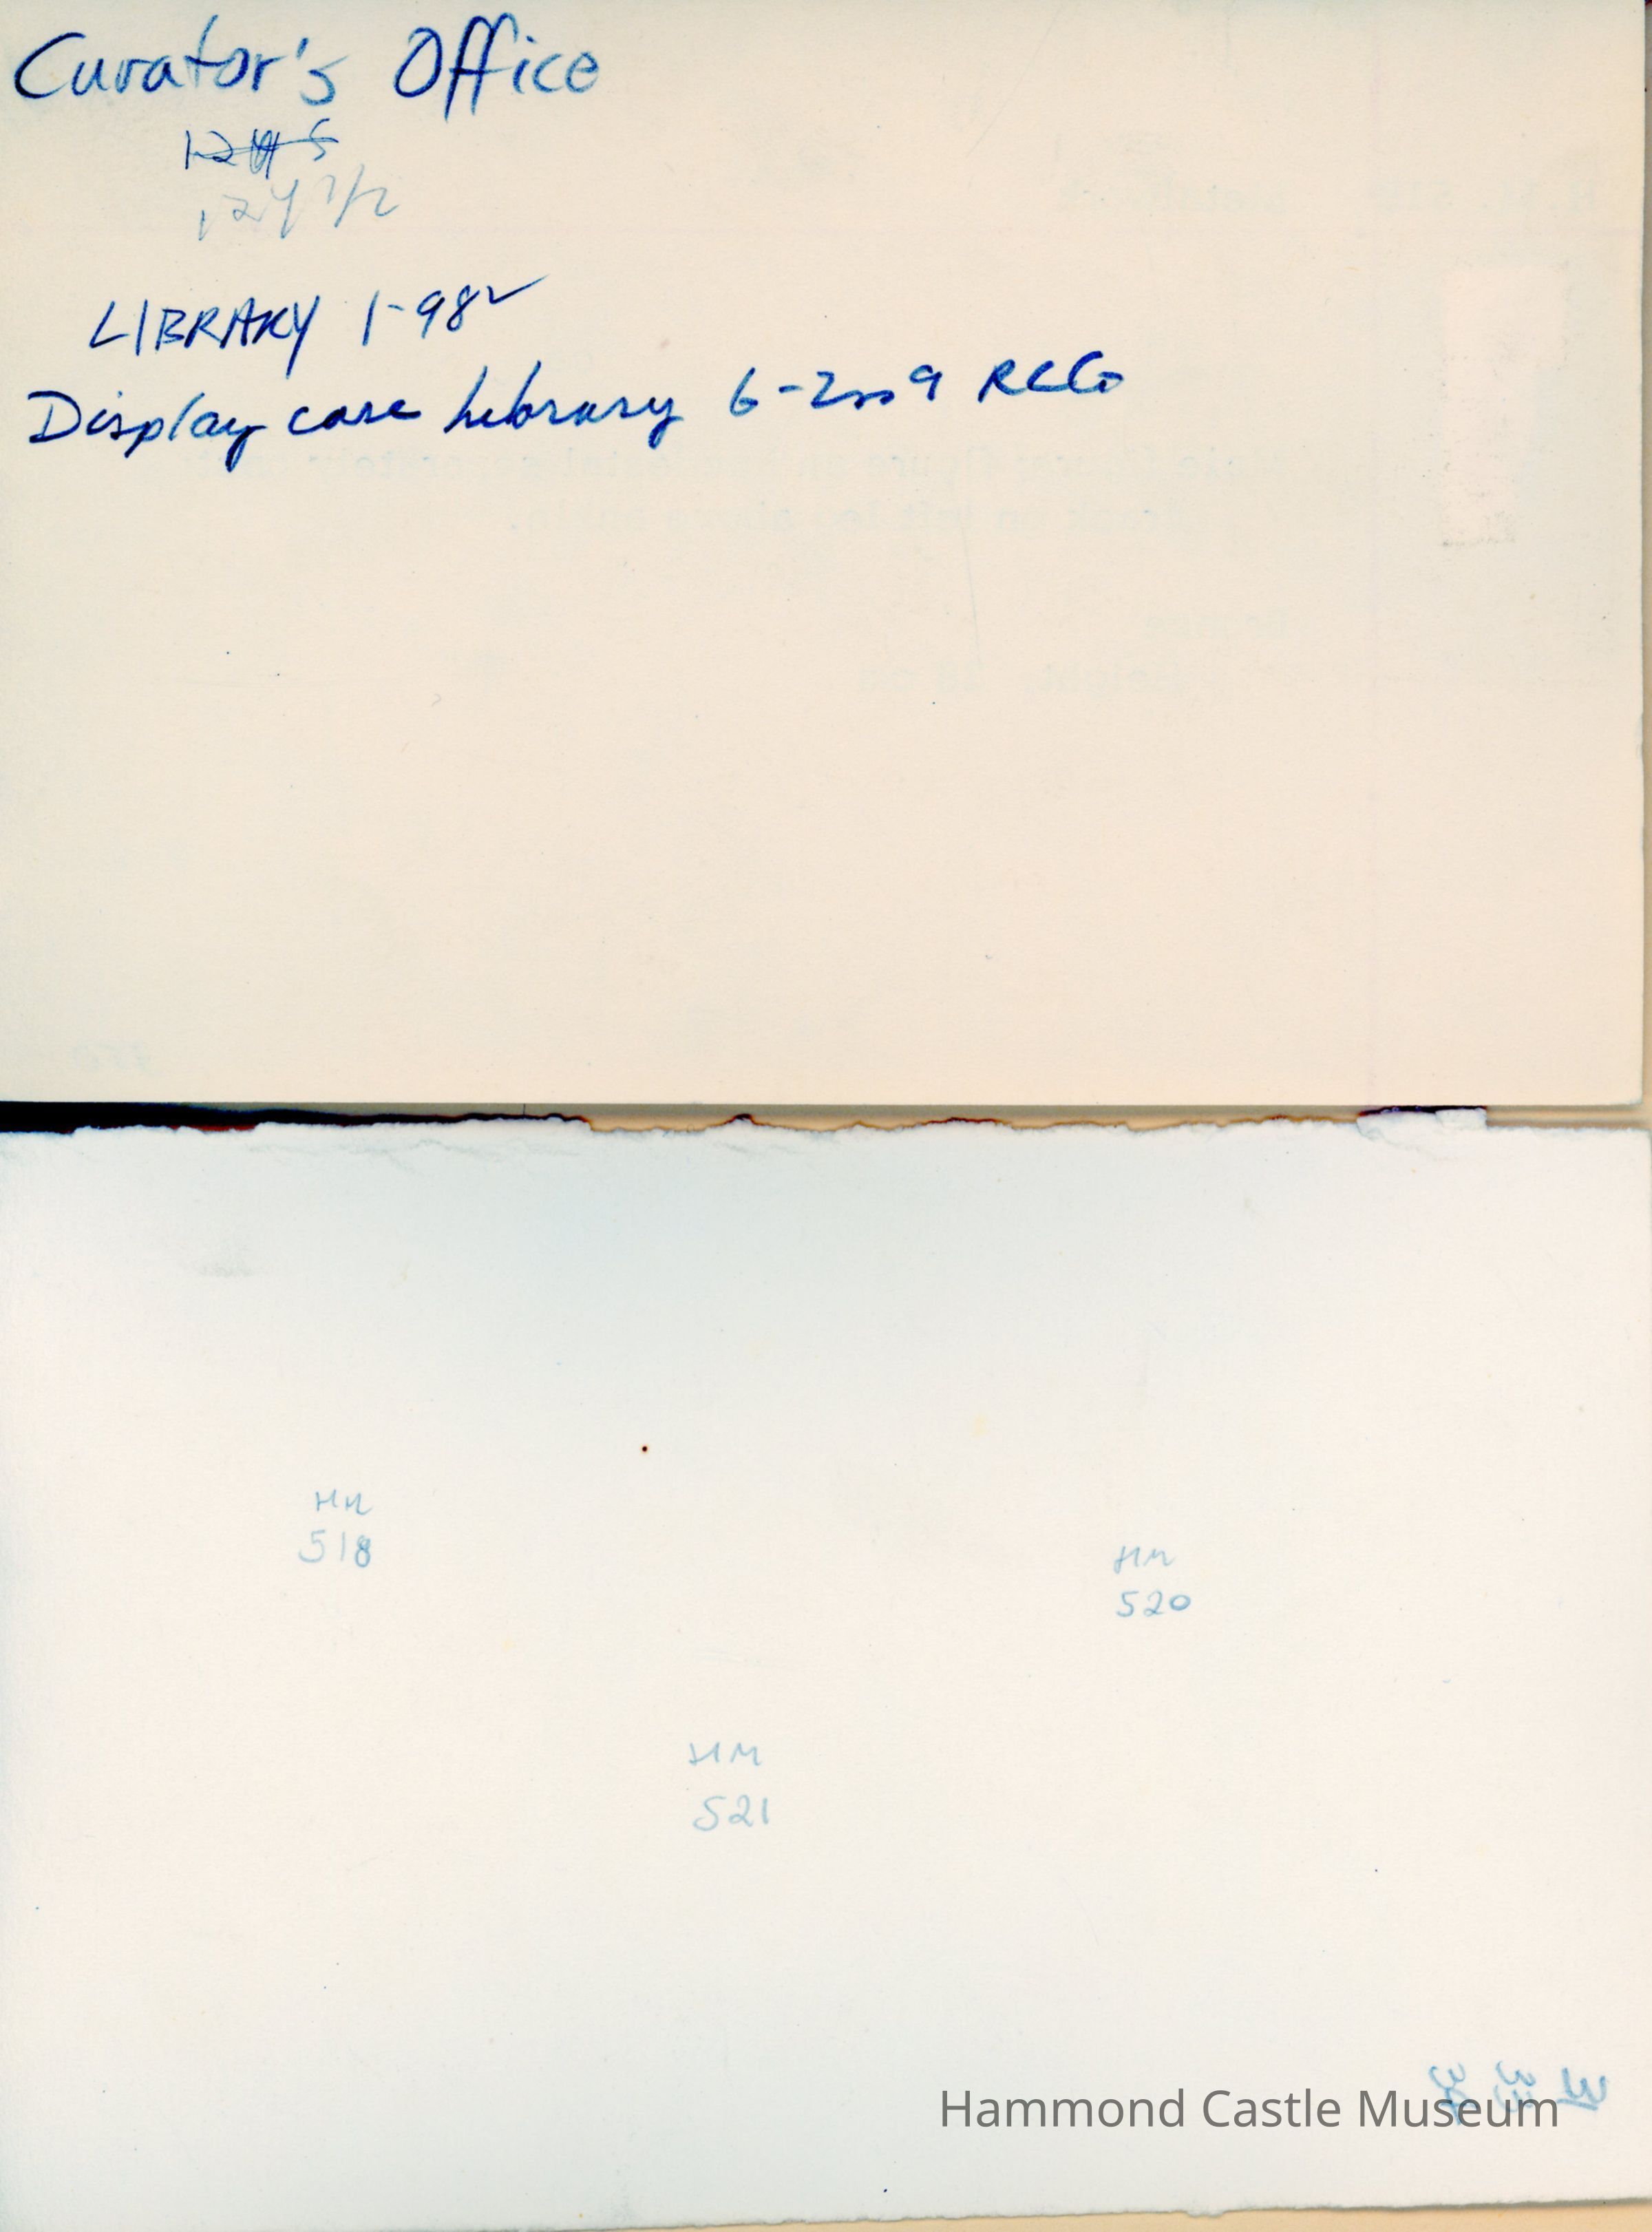 Curator's Office
124 1/2
LIBRARY 1-98✓
Display case Library 6-2009 RCG
HM
518
HM
520
HM
521
Hammond Castle Museum